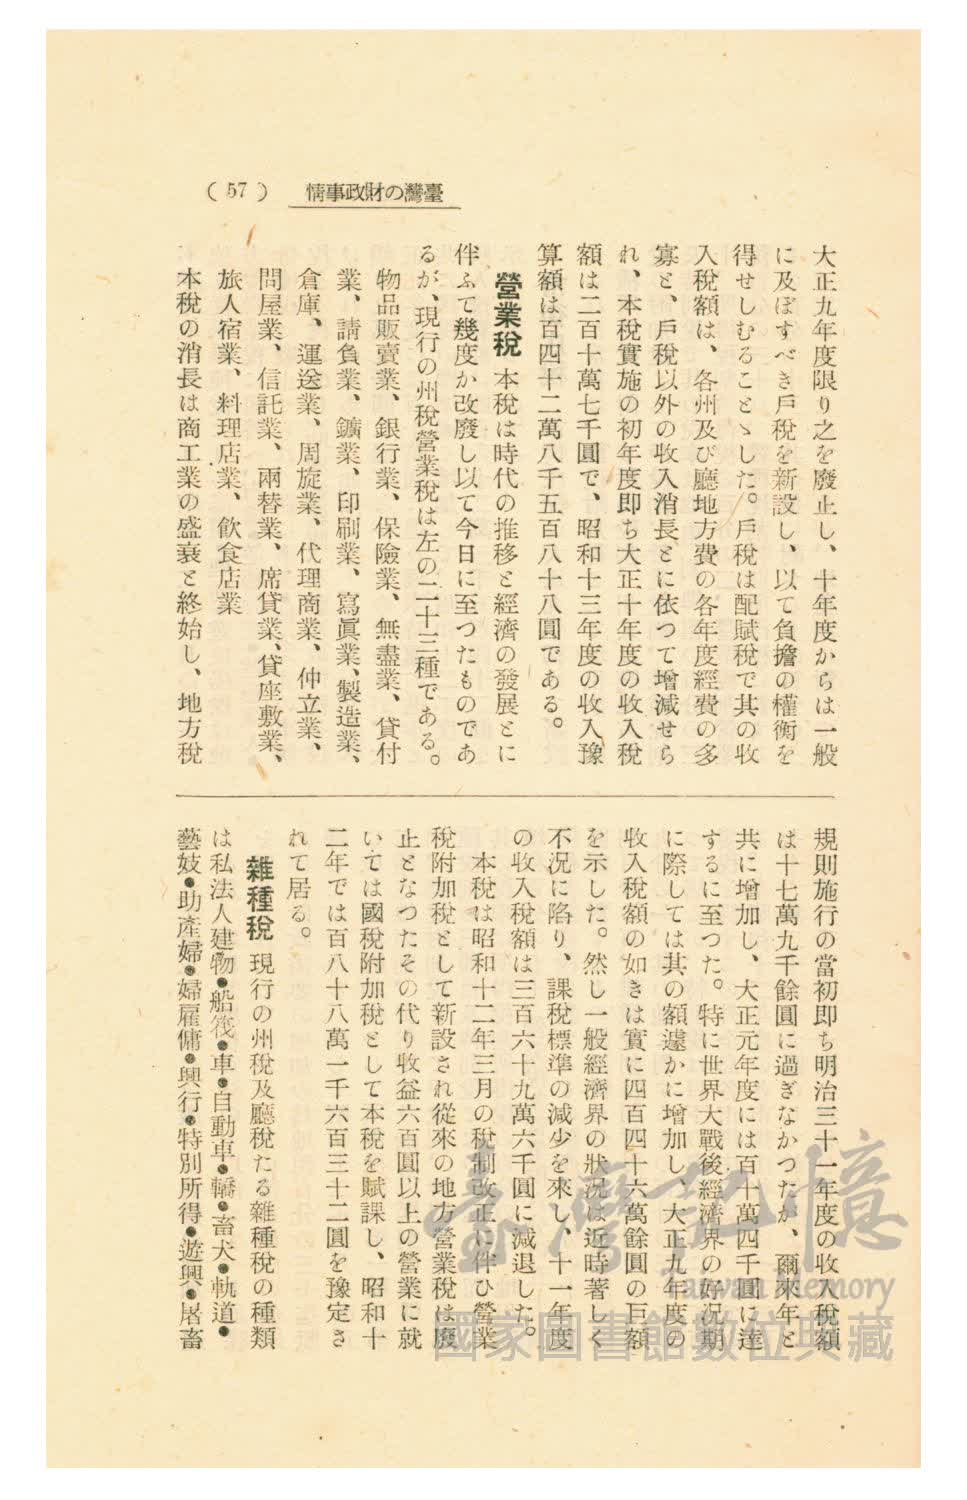 臺灣の財政事情 (57)
大正九年度限り之を廢止し、十年度からは一般
に及ぼすべき戶稅を新設し、以て負擔の權衡を
得せしむることゝした。戶稅は配賦稅で其の收
入稅額は、各州及び廳地方費の各年度經費の多
寡と、戶稅以外の收入消長とに依つて增減せら
れ、本稅實施の初年度卽ち大正十年度の收入稅
額は二百十萬七千圓で、昭和十三年度の收入豫
算額は百四十二萬八千五百八十八圓である。
營業稅 本稅は時代の推移と經濟の發展とに
伴ふて幾度か改廢し以て今日に至つたものであ
るが、現行の州稅營業稅は左の二十三種である。
物品販賣業、銀行業、保險業、無盡業、貸付
業、請負業、鑛業、印刷業、寫眞業、製造業、
倉庫、運送業、周旋業、代理商業、仲立業、
問屋業、信託業、兩替業、席貸業、貸座敷業、
旅人宿業、料理店業、飮食店業
本稅の消長は商工業の盛衰と終始し、地方稅
規則施行の當初卽ち明治三十一年度の收入稅額
は十七萬九千餘圓に過ぎなかつたが、爾來年と
共に增加し、大正元年度には百十萬四千圓に達
するに至つた。特に世界大戰後經濟界の好況期
に際しては其の額遽かに增加し、大正九年度の
收入稅額の如きは實に四百四十六萬餘圓の巨額
を示した。然し一般經濟界の狀況は近時著しく
不況に陷り、課稅標準の減少を來し、十一年度
の收入稅額は三百六十九萬六千圓に減退した。
本稅は昭和十二年三月の稅制改正に伴ひ營業
稅附加稅として新設され從來の地方營業稅は廢
止となつたその代り收益六百圓以上の營業に就
いては國稅附加稅として本稅を賦課し、昭和十
二年では百八十八萬一千六百三十二圓を豫定さ
れて居る。
雜種稅 現行の州稅及廳稅たる雜種稅の種類
は私法人建物●船筏●車●自動車●轎●畜犬●軌道●
藝妓●助產婦●婦雇傭●興行●特別所得●遊興●屠畜
臺灣記憶
Taiwan Memory
國家圖書館數位典藏